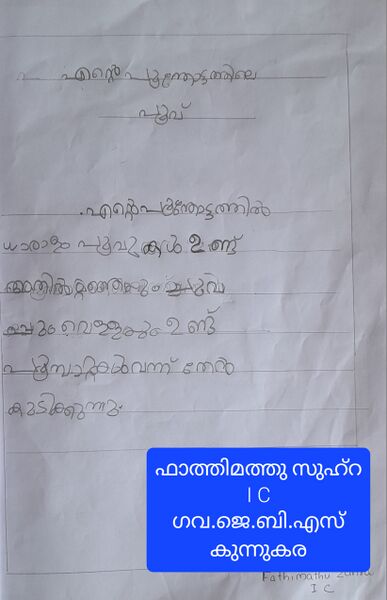 എന്റെ പൂന്തോട്ടത്തിലെ
പൂവ്
എന്റെ പൂന്തോട്ടത്തിൽ
ധാരാളം പൂവുകൾ ഉണ്ട്
വെള്ളയും ഉണ്ട്
പൂമ്പാറ്റകൾ വന്ന് തേൻ
കുടിക്കുന്നു.
ഫാത്തിമത്തു സുഹ്റ
I C
ഗവ.ജെ.ബി.എസ്
കുന്നുകര
Fathimathu
I C